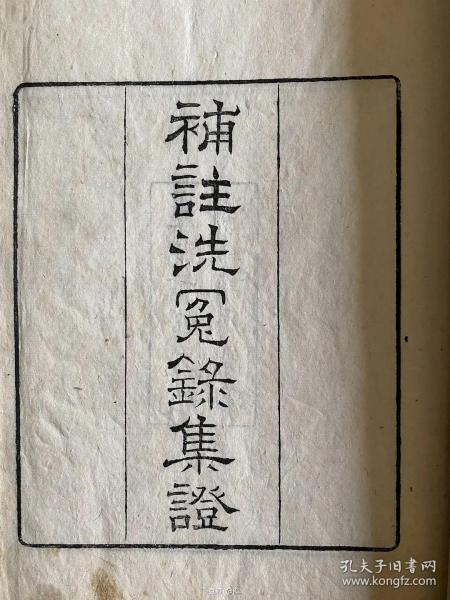 補註洗冤錄集證
孔夫子旧书网
www.kongfz.com